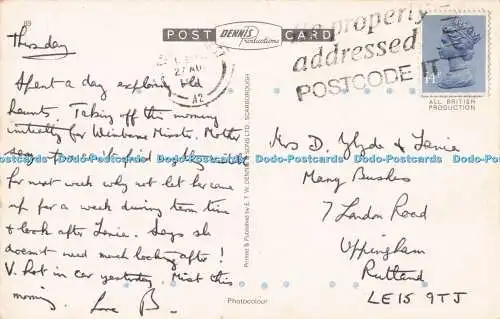 89
POST Dennis Productions CARD
properly
addressed
POSTCODE IT
27 AU
A2
ALL BRITISH
PRODUCTION
Thursday
Spent a day exploring old
haunts. Taking off this morning
initially for Wimborne Minster. Mother
says
for next week why not let her come
up for a week during term time
& look after Lanie. Says she
doesn't need much looking after!
V. hot in car yesterday. Mist this
morning. Love B-
Mrs D. Clyde & Lanie
Many Bushes
7 London Road
Uppingham
Rutland
LE15 9TJ
Printed & Published by E. T. W. DENNIS & SONS LTD. SCARBOROUGH
Photocolour
Dodo-Postcards Dodo-Postcards Dodo-Postcards Dodo-Postcards Dodo-Postcards